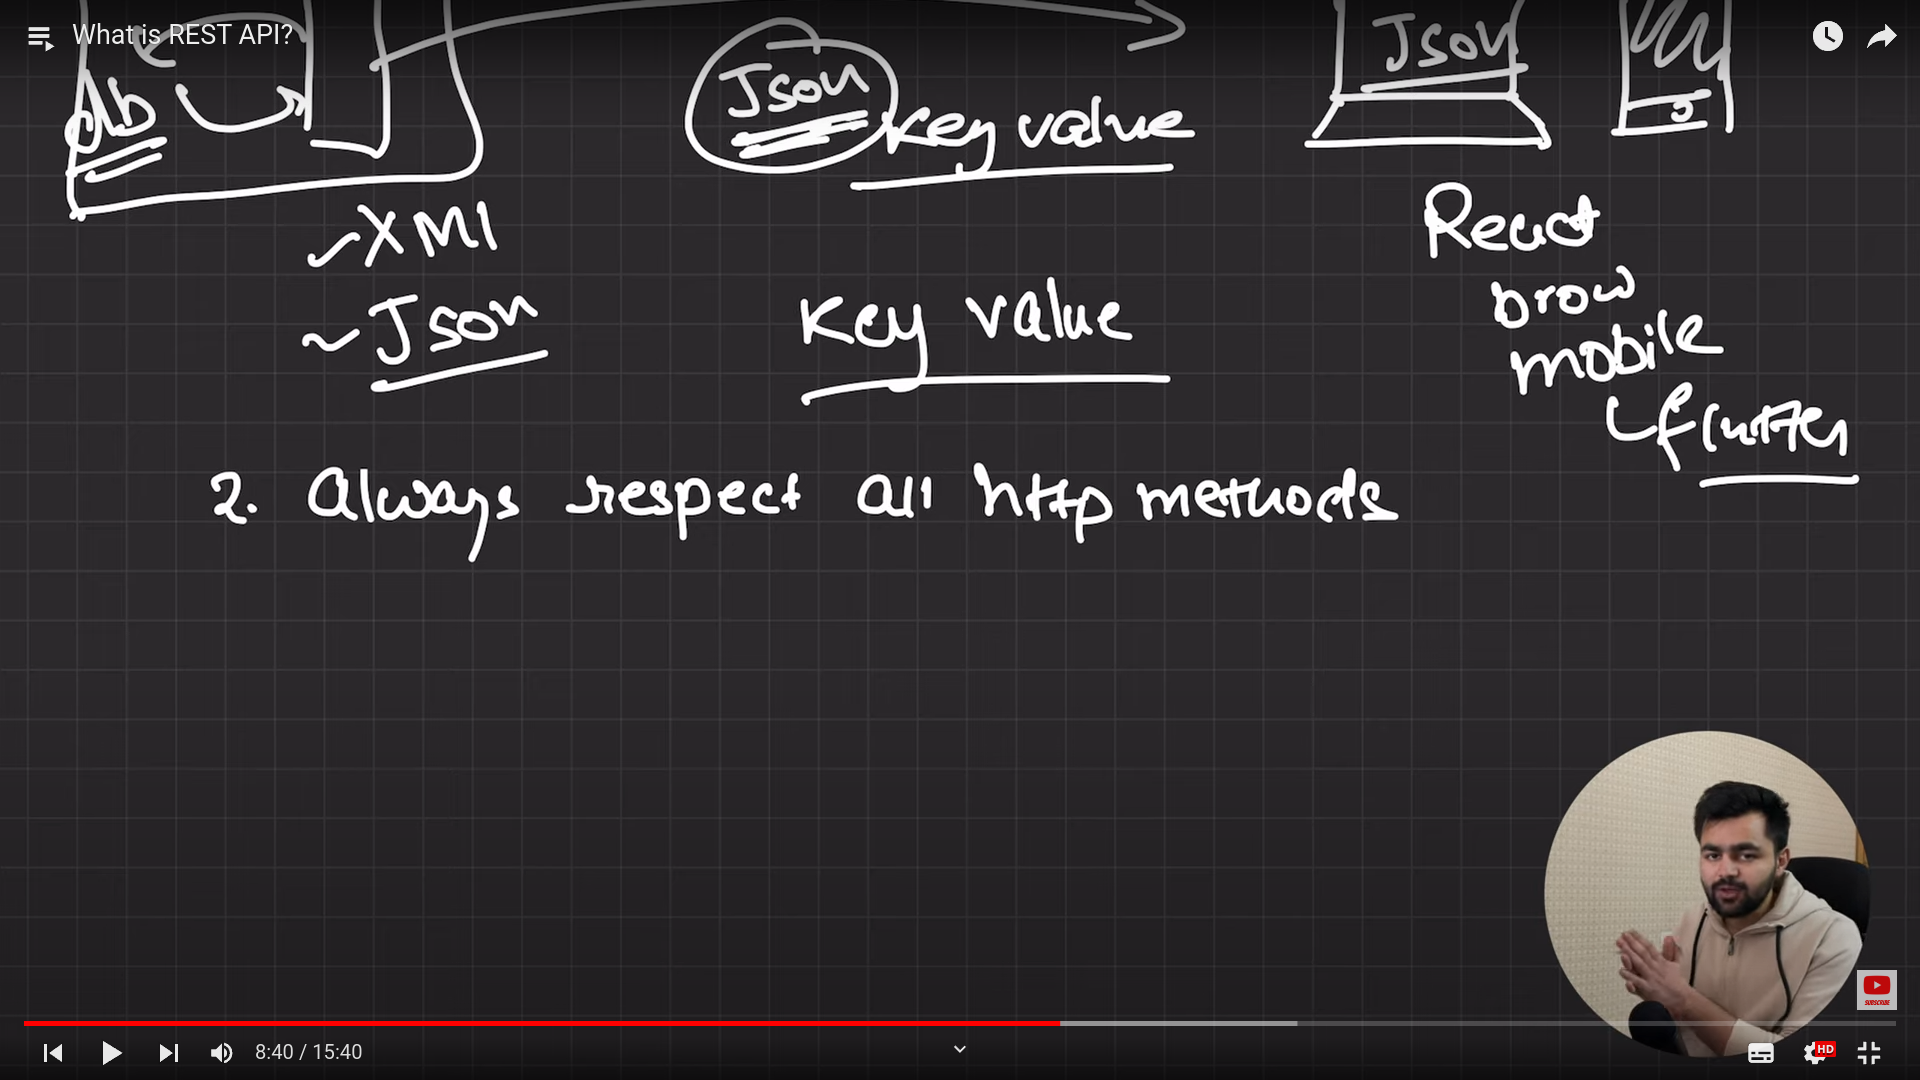 What is REST API?
db
Json
key value
Json
XMl
Json
key value
React
brow
mobile
flutter
2. Always respect all http methods
SUBSCRIBE
8:40 / 15:40
HD